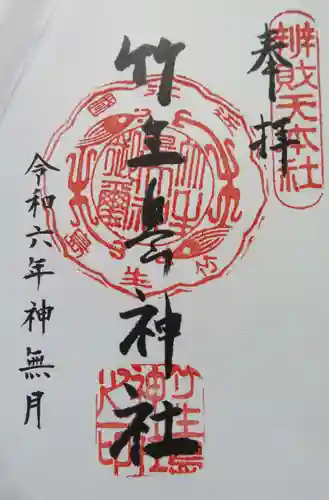 奉拝
辨戝天本社
竹生島神社
竹生島
神社
之印
令和六年神無月